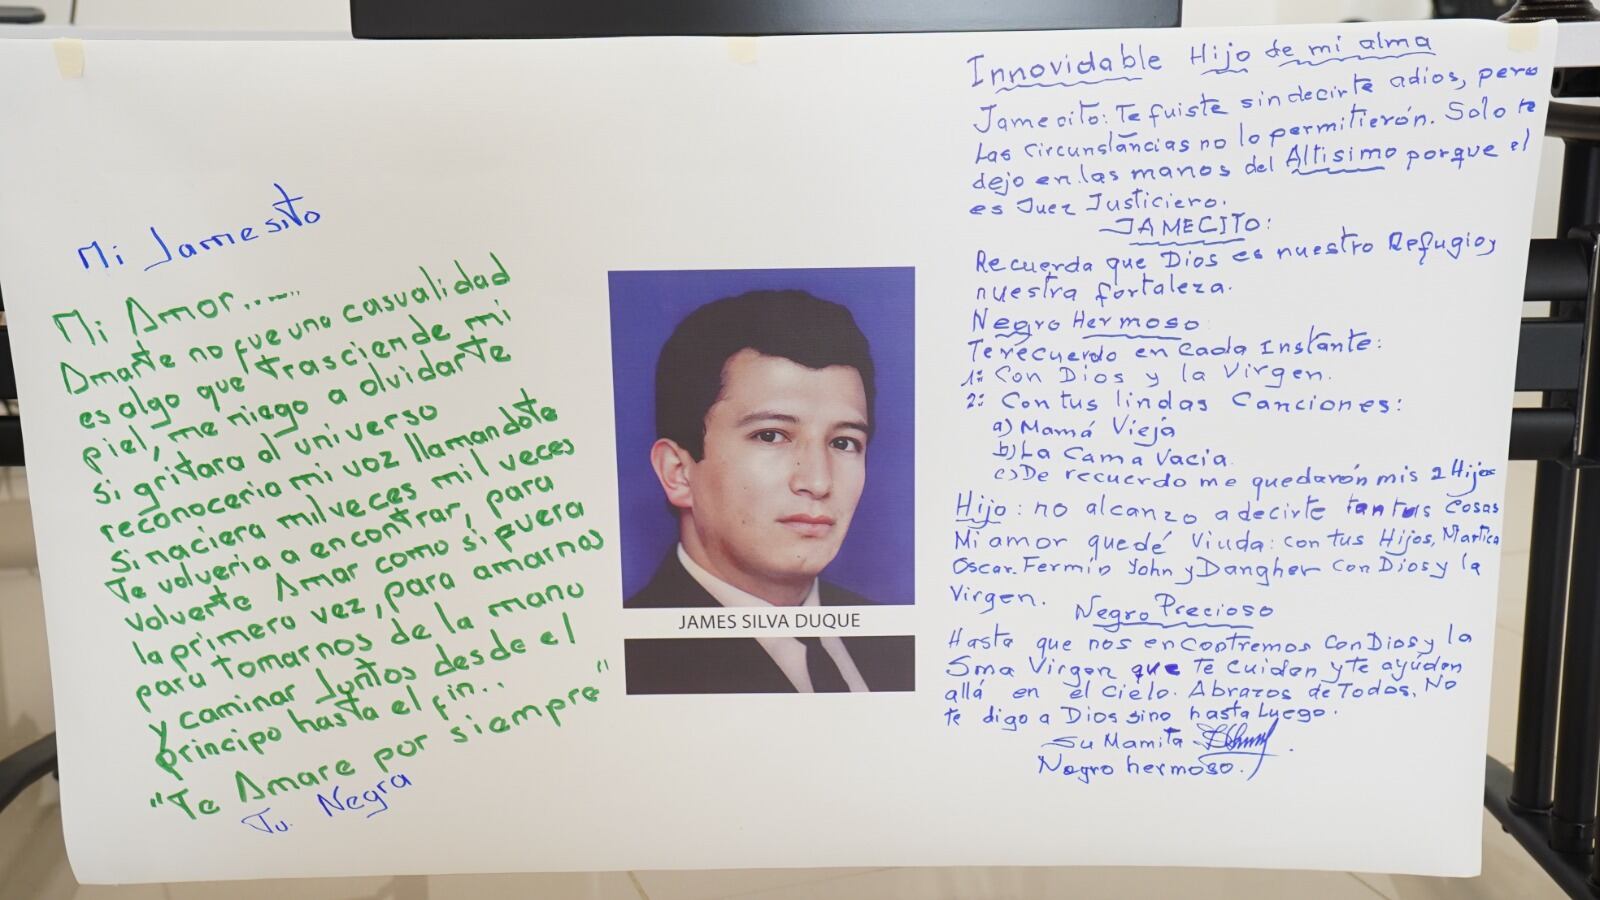 Mi Jamesito
Mi Amor......
Amarte no fue una casualidad
es algo que trasciende mi
piel, me niego a olvidarte
si gritara al universo
reconoceria mi voz llamandote
si naciera mil veces mil veces
Te volveria a encontrar, para
volverte Amar como si fuera
la primera vez, para amarnos
para tomarnos de la mano
y caminar Juntos desde el
principo hasta el fin..
"Te Amare por siempre"
Tu Negra
JAMES SILVA DUQUE
Innovidable Hijo de mi alma
Jamecito: Te fuiste sin decirte adios, pero
Las circunstancias no lo permitierón. Sólo te
dejo en las manos del Altisimo porque el
es Juez Justiciero.
JAMECITO:
Recuerda que Dios es nuestro Refugio y
nuestra fortaleza.
Negro Hermoso
Te recuerdo en cada Instante:
1: Con Dios y la Virgen.
2: Con tus lindas Canciones:
a) Mamá Viejá
b) La Cama Vacia.
c) De recuerdo me quedarón mis 2 Hijos
Hijo: no alcanzo a decirte tantas Cosas
Mi amor quedé Viuda: con tus Hijos, Martica
Oscar. Fermin John y Dangher con Dios y la
Virgen.
Negro Precioso
Hasta que nos encontremos con Dios y la
Sma Virgen que te cuiden y te ayúden
allá en el Cielo. Abrazos de Todos. No
te digo a Dios sino hasta Luego.
Su Mamita
Negro hermoso.